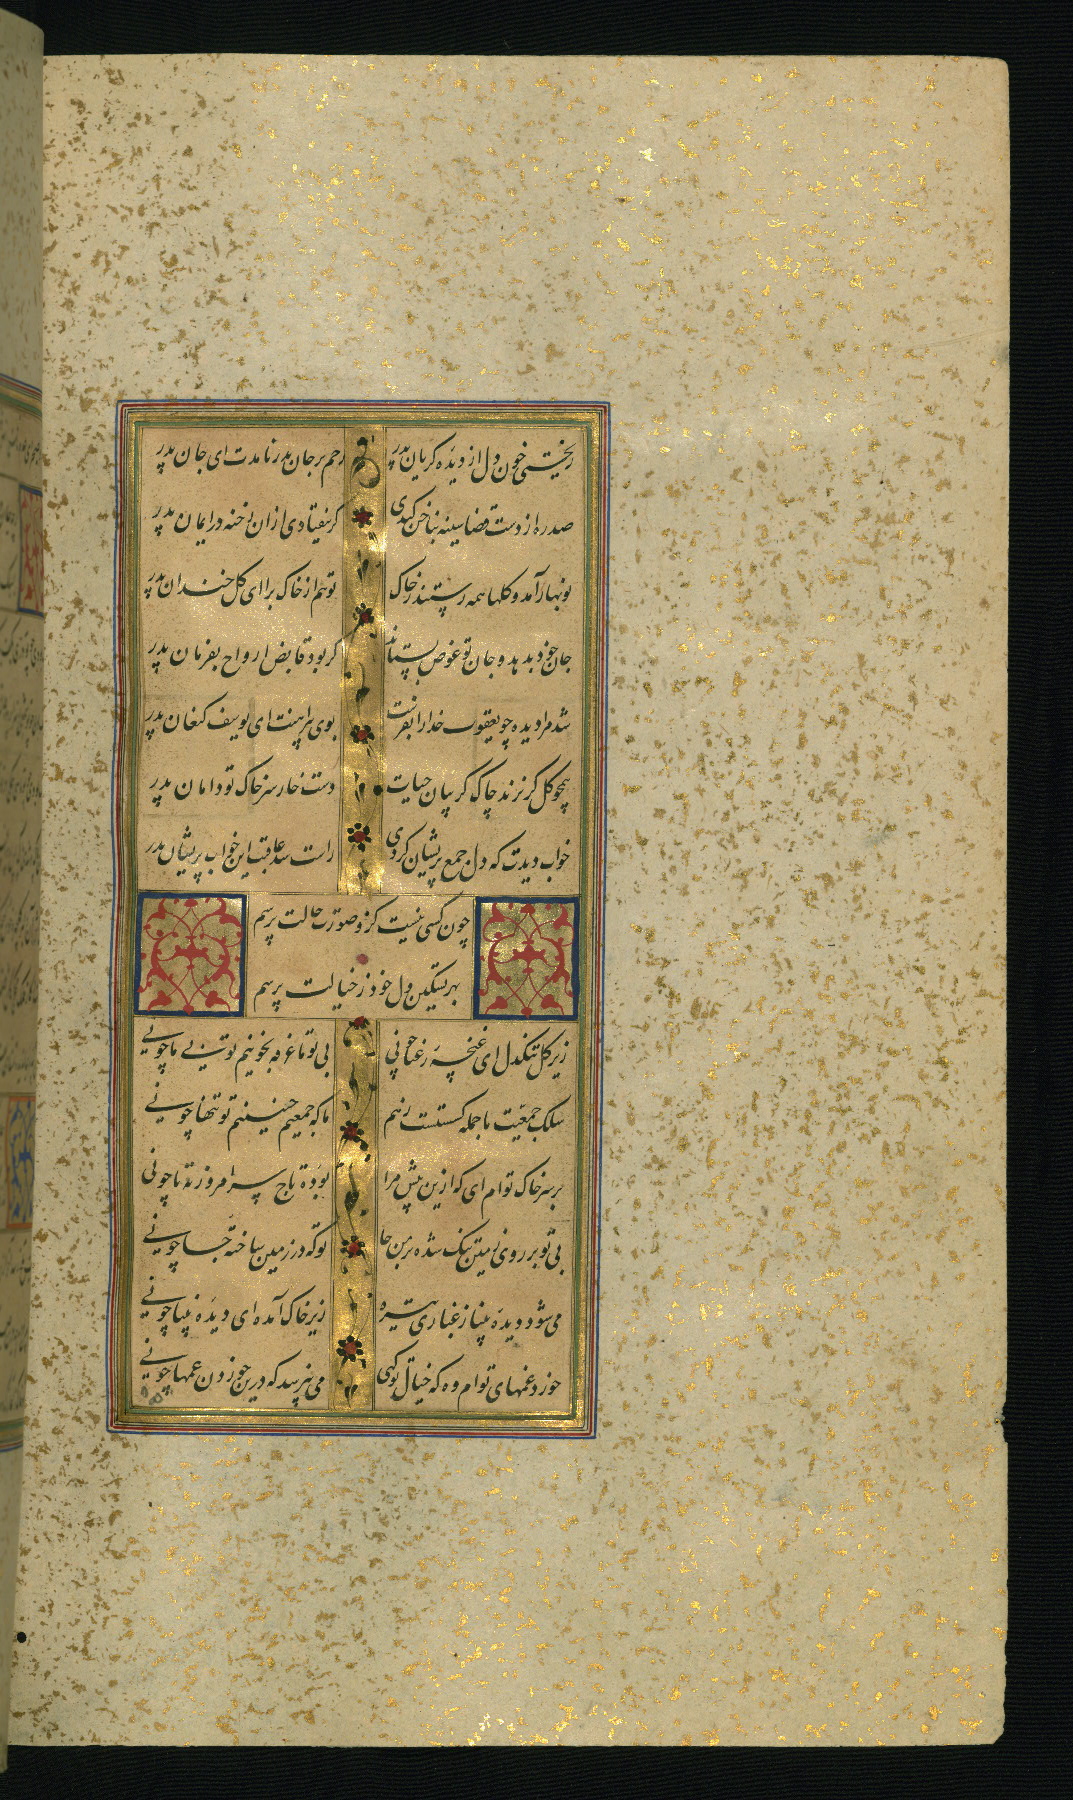 ریختی خون دل از دیده گریان پدر
رحم بر جان پدر نامدت ای جان پدر
صد ره از دست قضا سینه بناخن کندی
گر نیفتادی ازان رخنه در ایمان پدر
نوبهار آمد و گلها همه رستند ز خاک
تو هم از خاک برا ای گل خندان پدر
جان خود بدهد و جان تو عوض بستاند
گر بود قابض ارواح بفرمان پدر
شد مرا دیده چو یعقوب خدا را بفرست
بوی پیراهنت ای یوسف کنعان پدر
همچو گل گر نزند چاک گریبان حیات
دست خار سر خاک تو و دامان پدر
خواب دیدت که دل جمع پریشان کردی
راست شد عاقبت این خواب پریشان پدر
چون کسی نیست کزو صورت حالت پرسم
بهر تسکین دل خود ز خیالت پرسم
زیر گل تنگدل ای غنچه رعنا چونی
بی تو ما غرقه بخونیم تو بی ما چونی
سلک جمعیت ما بی تو گسست از هم
ما که جمعیم چنینیم تو تنها چونی
بر سر خاک توام ای که ازین پیش مرا
بوده تاج سر امروز ته پا چونی
بی تو بر روی زمین تنگ شده بر من جا
تو که در زیر زمین ساخته جا چونی
می شود دیده بینا ز غباری تیره
زیر خاک آمده ای دیده بینا چونی
خورد غمهای توام وه که خیال تو گهی
می نپرسد که درین خوردن غمها چونی